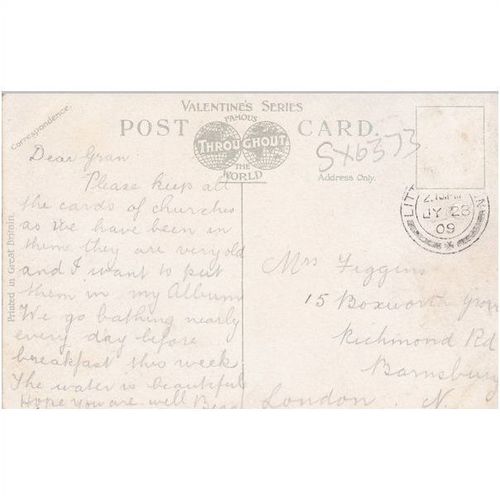 Correspondence.
VALENTINE'S SERIES
FAMOUS
POST CARD.
THROUGHOUT
THE
WORLD
Address Only.
SX6373
Printed in Great Britain.
Dear Gran
Please keep all
the cards of churches
as we have been in
them they are very old
and I want to put
them in my Album
We go bathing nearly
every day before
breakfast this week
The water is beautiful
Hope you are well
LITT
JY 23
09
Mrs Figgins
15 Boxworth Grove
Richmond Rd
Barnsbury
London. N.